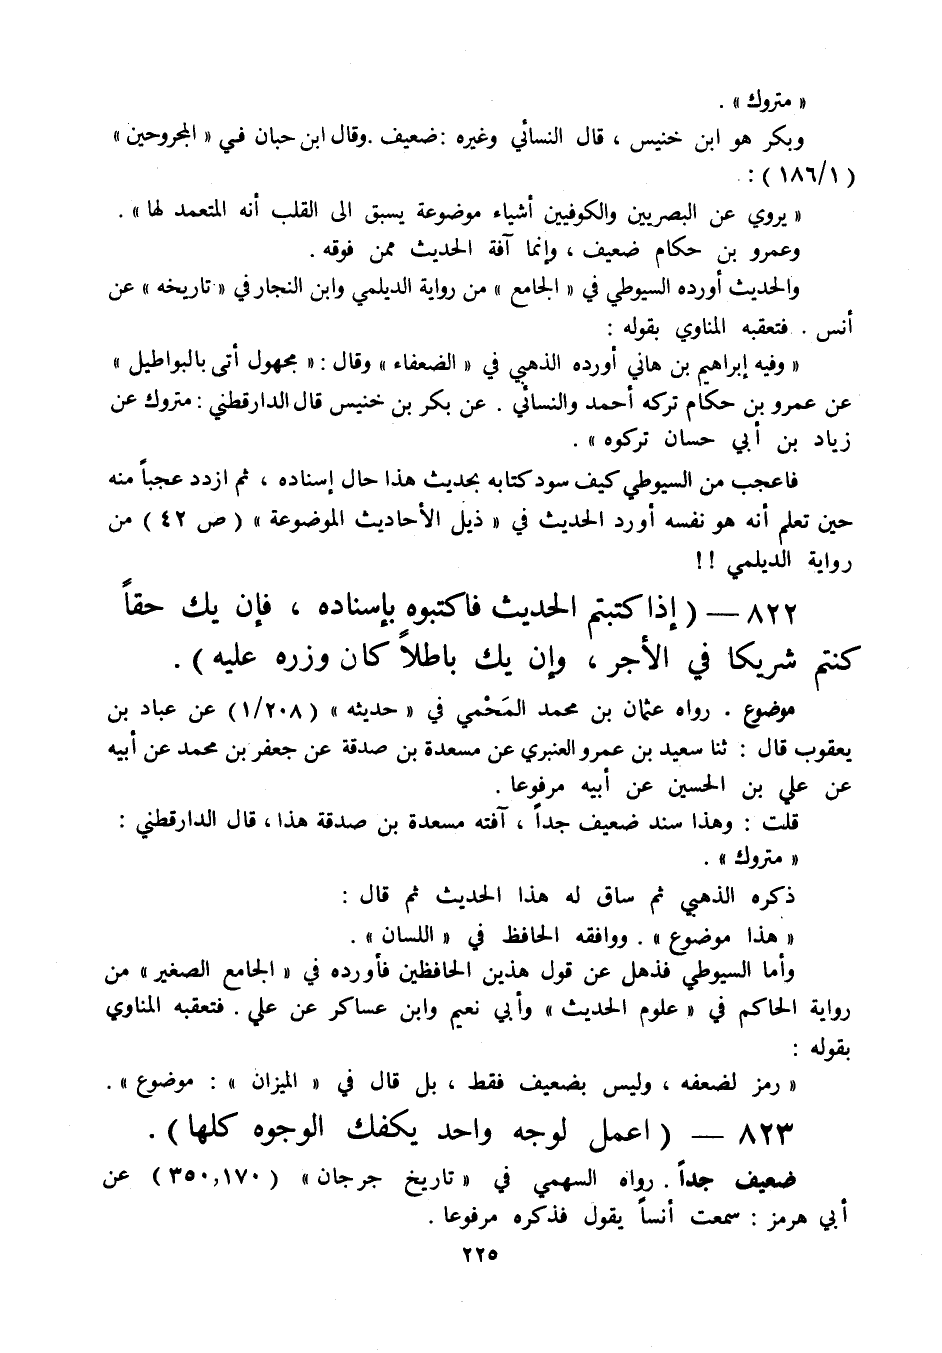 « متروك » .
وبكر هو ابن خنيس ، قال النسائي وغيره : ضعيف . وقال ابن حبان في « المجروحين »
( ١٨٦/١ ) :
« يروي عن البصريين والكوفيين أشياء موضوعة يسبق الى القلب أنه المتعمد لها » .
وعمرو بن حكام ضعيف ، وإنما آفة الحديث ممن فوقه .
والحديث أورده السيوطي في « الجامع » من رواية الديلمي وابن النجار في « تاريخه » عن
أنس . فتعقبه المناوي بقوله :
« وفيه إبراهيم بن هاني أورده الذهبي في « الضعفاء » وقال : « مجهول أتى بالبواطيل »
عن عمرو بن حكام تركه أحمد والنسائي . عن بكر بن خنيس قال الدارقطني : متروك عن
زياد بن أبي حسان تركوه » .
فاعجب من السيوطي كيف سود كتابه بحديث هذا حال إسناده ، ثم ازدد عجباً منه
حين تعلم أنه هو نفسه أورد الحديث في « ذيل الأحاديث الموضوعة » ( ص ٤٢ ) من
رواية الديلمي !!
٨٢٢ — ( إذا كتبتم الحديث فاكتبوه بإسناده ، فإن يك حقاً
كنتم شريكا في الأجر ، وإن يك باطلاً كان وزره عليه ) .
موضوع . رواه عثمان بن محمد المَحْمي في « حديثه » ( ١/٢٠٨ ) عن عباد بن
يعقوب قال : ثنا سعيد بن عمرو العنبري عن مسعدة بن صدقة عن جعفر بن محمد عن أبيه
عن علي بن الحسين عن أبيه مرفوعا .
قلت : وهذا سند ضعيف جداً ، آفته مسعدة بن صدقة هذا ، قال الدارقطني :
« متروك » .
ذكره الذهبي ثم ساق له هذا الحديث ثم قال :
« هذا موضوع » . ووافقه الحافظ في « اللسان » .
وأما السيوطي فذهل عن قول هذين الحافظين فأورده في « الجامع الصغير » من
رواية الحاكم في « علوم الحديث » وأبي نعيم وابن عساكر عن علي . فتعقبه المناوي
بقوله :
« رمز لضعفه ، وليس بضعيف فقط ، بل قال في « الميزان » : موضوع » .
٨٢٣ — ( اعمل لوجه واحد يكفك الوجوه كلها ) .
ضعيف جداً . رواه السهمي في « تاريخ جرجان » ( ٣٥٠,١٧٠ ) عن
أبي هرمز : سمعت أنساً يقول فذكره مرفوعا .
٢٢٥